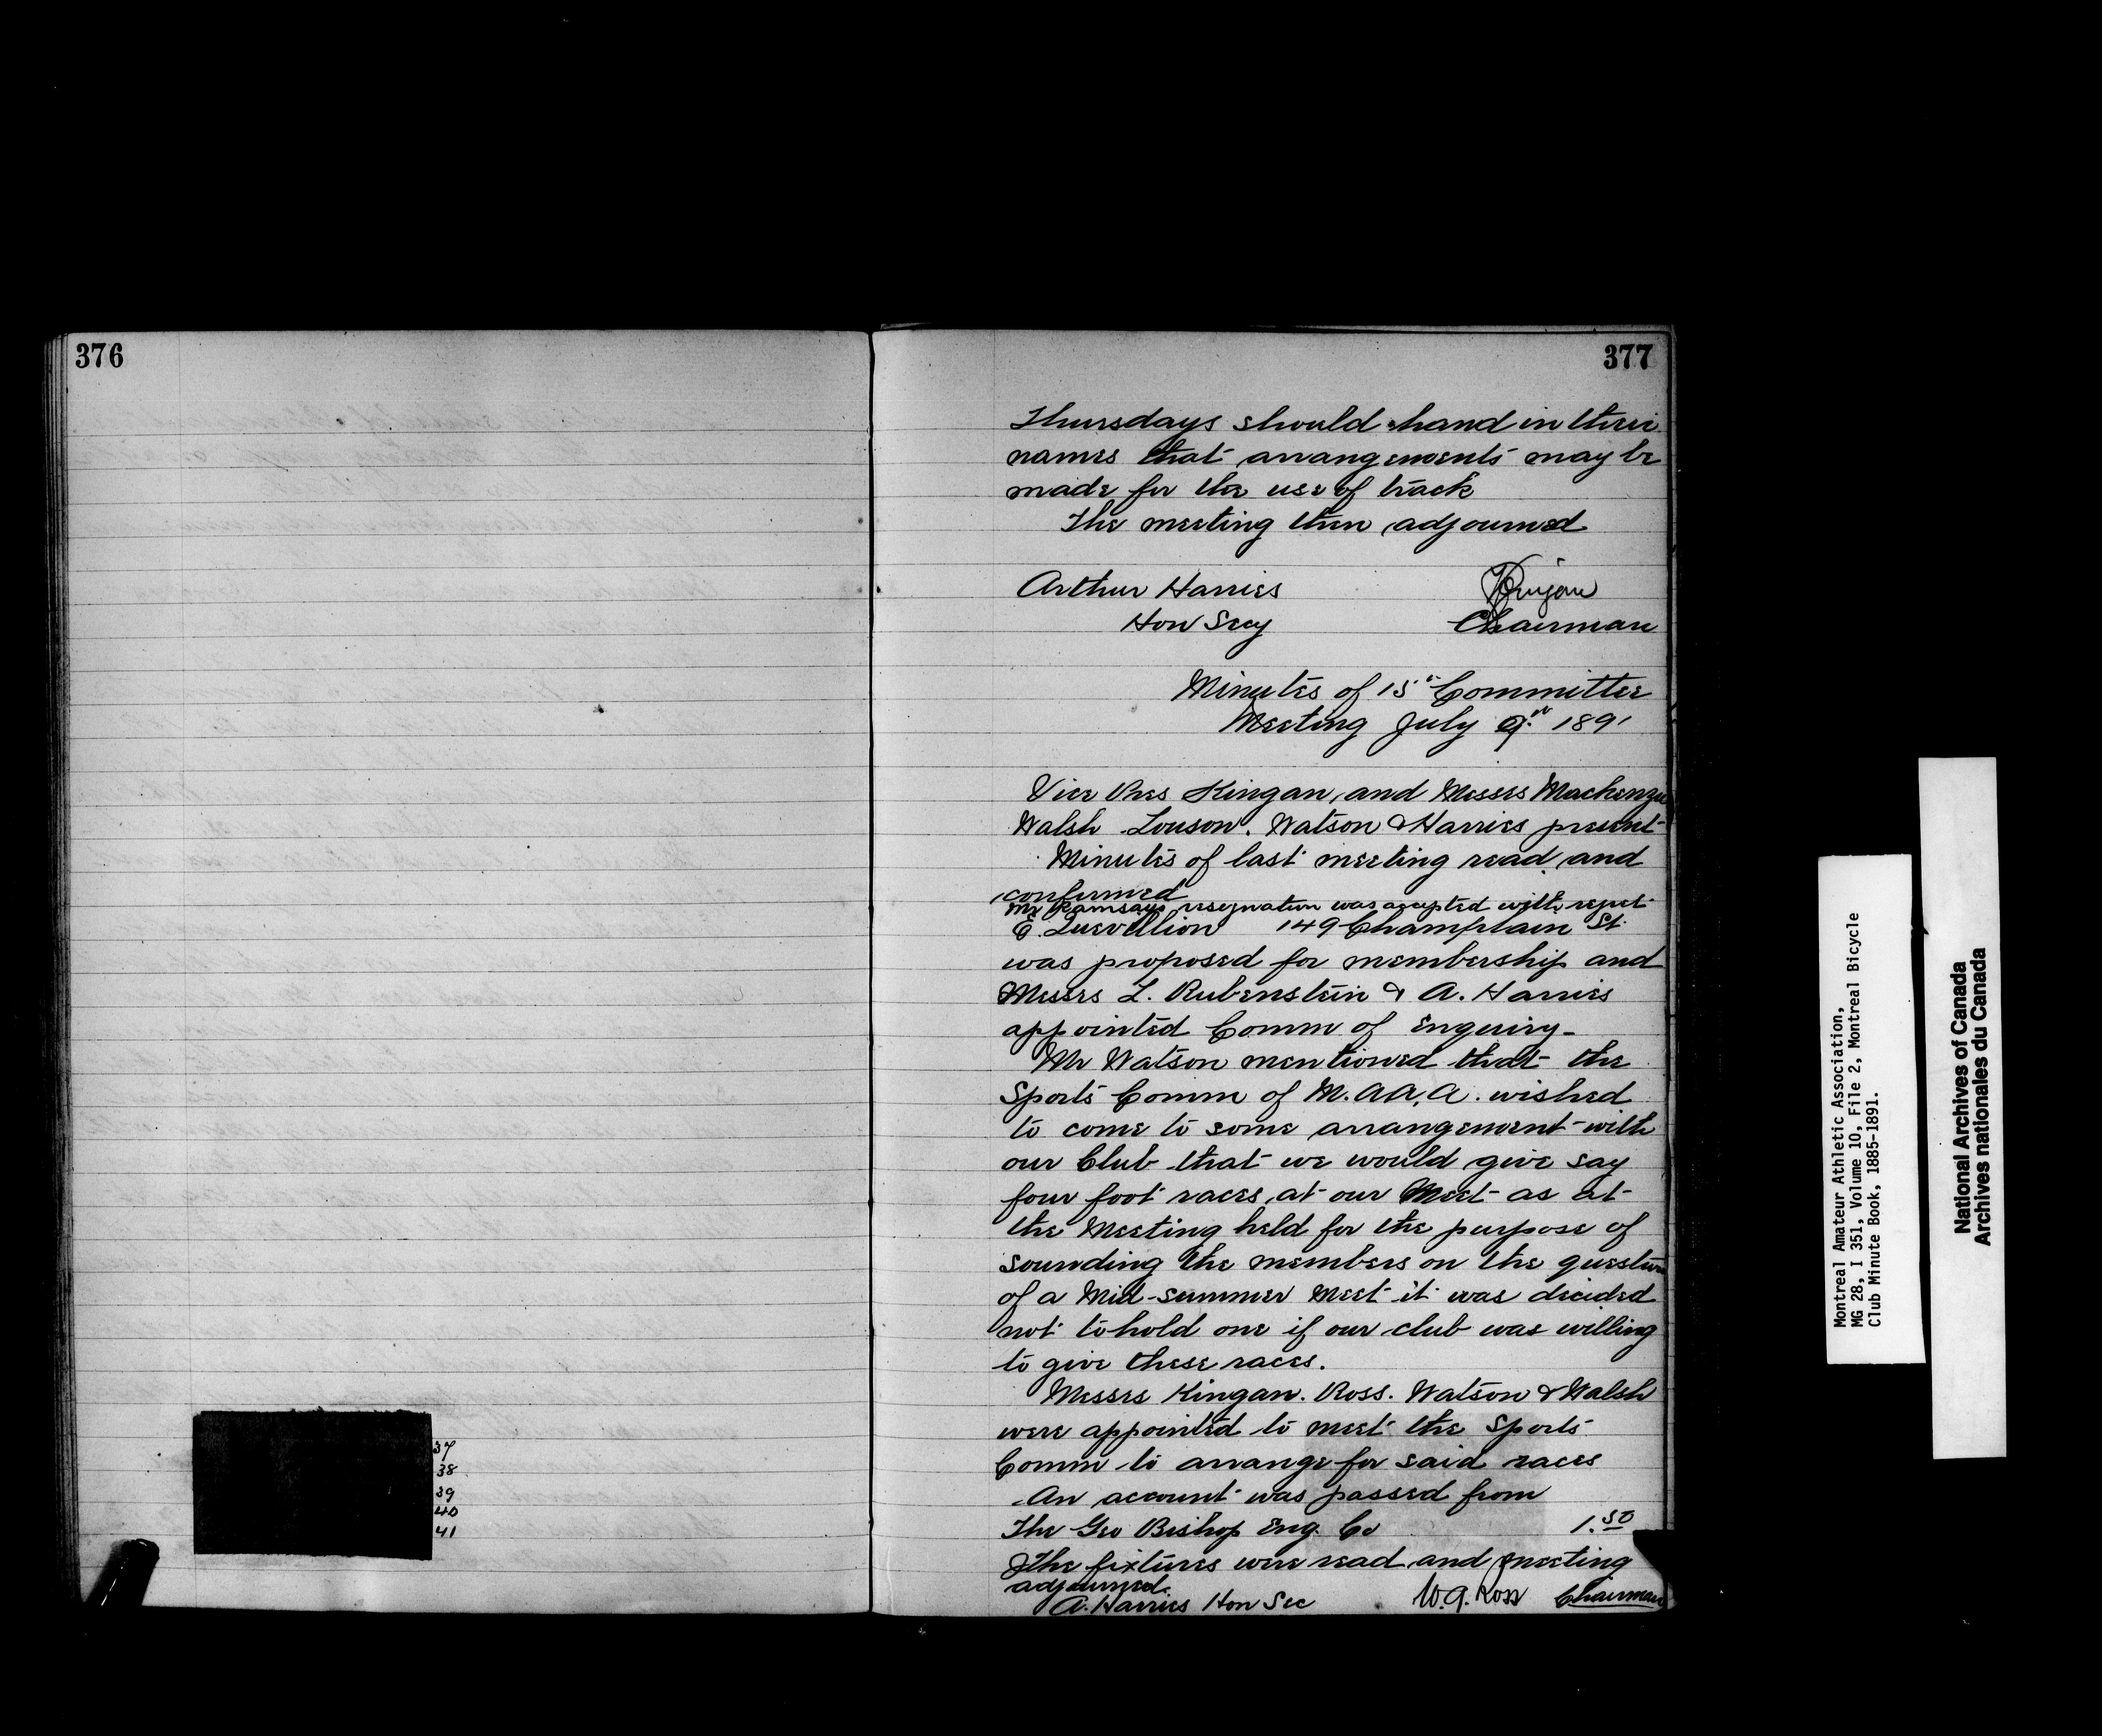 376
37
38
39
40
41
377
Thursdays should hand in their
names that arrangements may be
made for the use of track
The meeting then adjourned
Arthur Harries
Hon Secy
Chairman
Minutes of 15th Committee
Meeting July 9th 1891
Vice Pres Kingan, and Messrs Mackenzie
Walsh Louson. Watson & Harries present
Minutes of last meeting read and
confirmed
Mr Ramsays resignation was accepted with regret
E. Quevillion 149 Champlain St.
was proposed for membership and
Messrs L. Rubenstein & A. Harries
appointed Comm of Enquiry_
Mr Watson mentioned that the
Sports Comm of M.A.A.A. wished
to come to some arrangement with
our Club that we would give say
four foot races at our Meet as at
the Meeting held for the purpose of
sounding the members on the question
of a Mid-summer Meet it was decided
not to hold one if our club was willing
to give these races.
Messrs Kingan. Ross. Watson & Walsh
were appointed to meet the Sports
Comm to arrange for said races
An account was passed from
The Geo Bishop Eng. Co 1.50
The fixtures were read and meeting
adjourned.
A. Harries Hon Sec W.G. Ross Chairman
Montreal Amateur Athletic Association,
MG 28, I 351, Volume 10, File 2, Montreal Bicycle
Club Minute Book, 1885-1891.
National Archives of Canada
Archives nationales du Canada